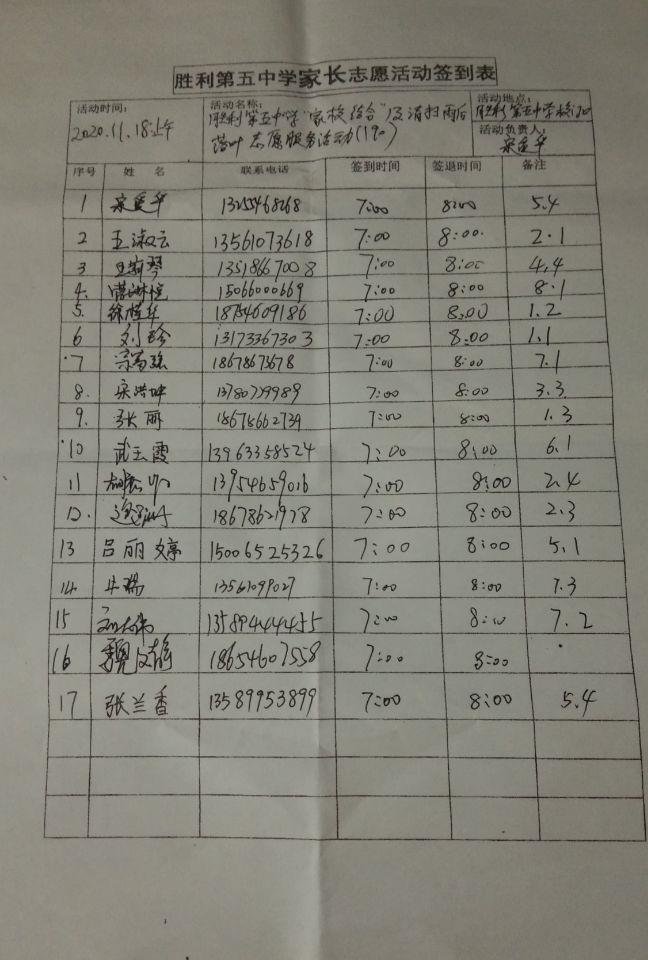 胜利第五中学家长志愿活动签到表
活动时间： 2020.11.18上午
活动名称： 胜利第五中学"家校结合"及清扫雨后落叶志愿服务活动(190)
活动地点： 胜利第五中学校门口
活动负责人：
序号 姓名 联系电话 签到时间 签退时间 备注
1 13255468268 7:00 8:00 5.4
2 王淑云 13561073618 7:00 8:00. 2.1
3 13518667008 7:00 8:00 4.4
4. 15066000669 7:00 8:00 8.1
5. 18754609186 7:00 8:00 1.2
6 刘玲 13173367303 7:00 8:00 1.1
7 18678673678 7:00 8:00 7.1
8. 宋洪坤 13780779989 7:00 8:00 3.3
9. 张丽 18678662734 7:00 8:00 1.3
10 武玉霞 13963358524 7:00 8:00 6.1
11 13954659016 7:00 8:00 2.4
12. 18678621978 7:00 8:00 2.3
13 吕丽婷 15006525326 7:00 8:00 5.1
14. 牛瑞 13561099027 7:00 8:00 7.3
15 13589444455 7:00 8:00 7.2
16 魏文雄 18654607558 7:00 8:00
17 张兰香 13589953899 7:00 8:00 5.4